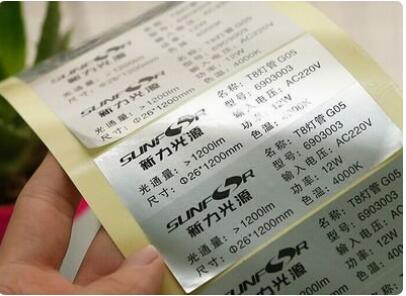 SUNFOR
新力光源
光通量：>1200lm
尺寸：Φ26*1200mm
输入电压：AC220V
功率：12W
色温：4000K
SUNFOR
新力光源
光通量：>1200lm
尺寸：Φ26*1200mm
名称：T8灯管 G05
型号：6903003
输入电压：AC220V
功率：12W
色温：4000K
SUNFOR
新力光源
光通量：>1200lm
尺寸：Φ26*1200mm
名称：T8灯管 G05
型号：6903003
输入电压：AC220V
功率：12W
色温：4000K
SUNFOR
新力光源
名称：T8灯管 G05
型号：6903003
输入电压：
功率：12W
色温：4000K